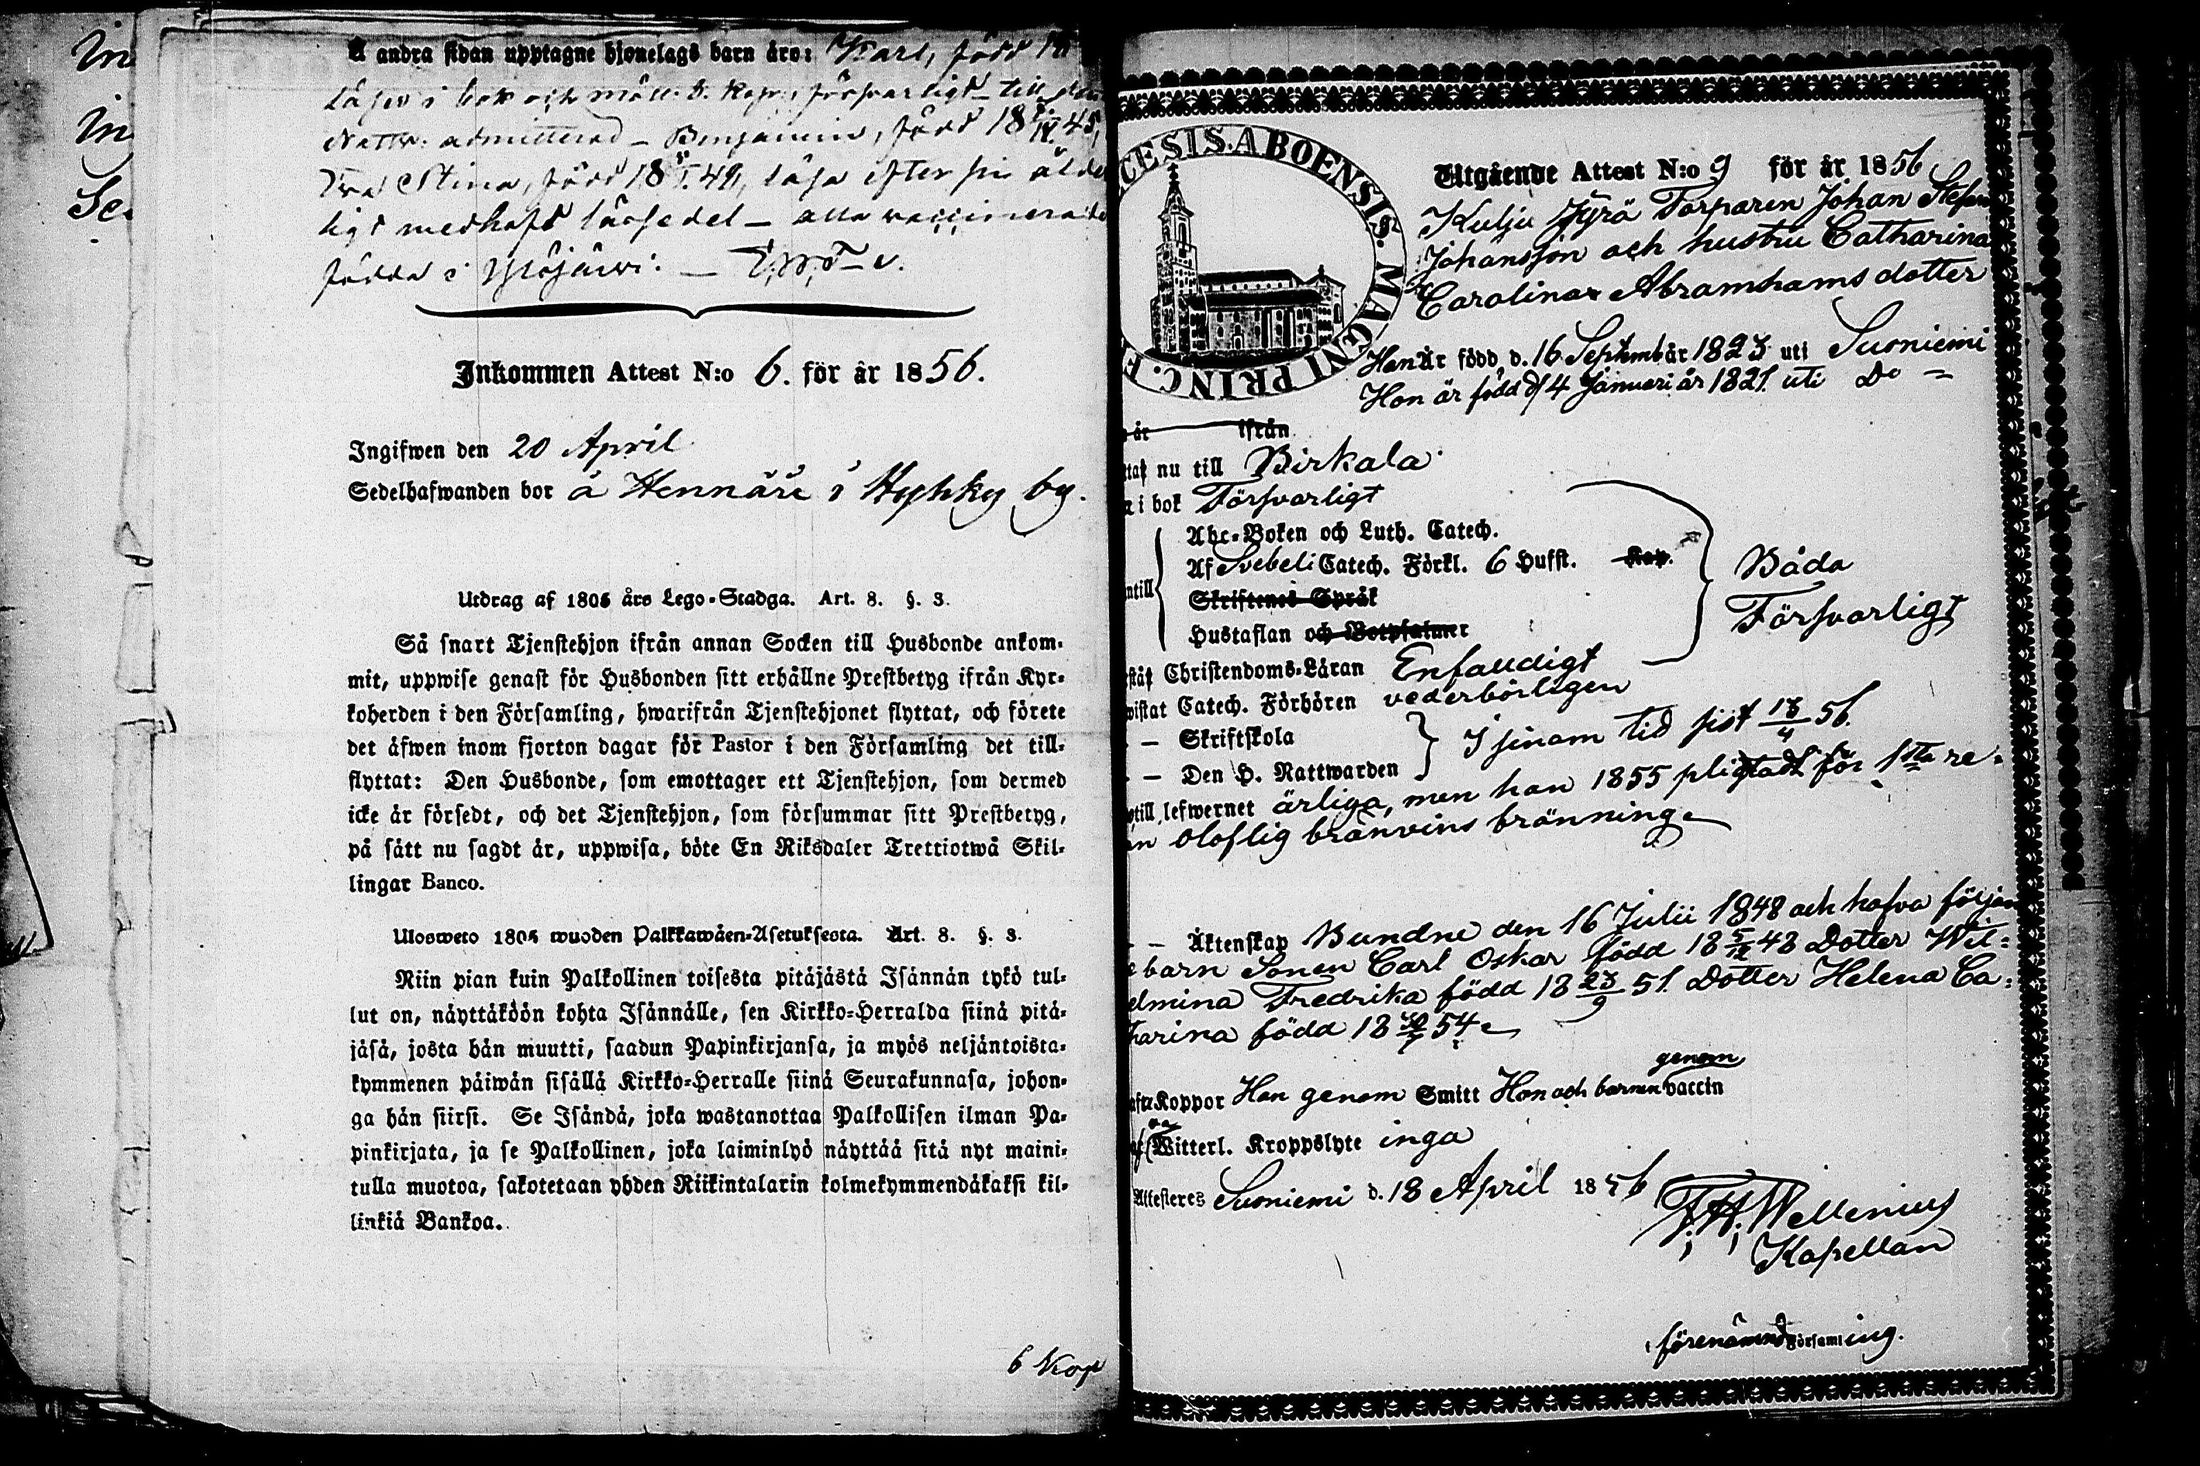 In
In
Se
Å andra sidan upptagne hjonelags barn äro: Karl, född 18
läser i bok och Försvarligt till
Nattv. admitterad – Benjamin, född 18 45,
Stina, född 18 49, läsa efter sin
ligt medhafd läsesedel – alla vaccinerade
födda i Ylöjärvi. –
Inkommen Attest N:o 6. för år 1856.
Ingifwen den 20 April
Sedelhafwanden bor å Hennäri i Hyhky by.
Utdrag af 1805 års Lego-Stadga. Art. 8. §. 3.
Så snart Tjenstehjon ifrån annan Socken till Husbonde ankom-
mit, uppwise genast för Husbonden sitt erhållne Prestbetyg ifrån Kyr-
koherden i den Församling, hwarifrån Tjenstehjonet flyttat, och förete
det äfwen inom fjorton dagar för Pastor i den Församling det till-
flyttat: Den Husbonde, som emottager ett Tjenstehjon, som dermed
icke är försedt, och det Tjenstehjon, som försummar sitt Prestbetyg,
på sätt nu sagdt är, uppwisa, böte En Riksdaler Trettiotwå Skil-
lingar Banco.
Ulosweto 1805 wuoden Palkkawäen-Asetuksesta. Art. 8. §. 3.
Niin pian kuin Palkollinen toisesta pitäjästä Isännän tykö tul-
lut on, näyttäköön kohta Isännälle, sen Kirkko-Herralda siinä pitä-
jäsä, josta hän muutti, saadun Papinkirjansa, ja myös neljäntoista-
kymmenen päiwän sisällä Kirkko-Herralle siinä Seurakunnasa, johon-
ga hän siirsi. Se Isändä, joka wastanottaa Palkollisen ilman Pa-
pinkirjata, ja se Palkollinen, joka laiminlyö näyttää sitä nyt maini-
tulla muotoa, sakotetaan yhden Riikintalarin kolmekymmendäkaksi kil-
linkiä Bankoa.
6 Kop
CESIS. ABOENSIS. MAGNI PRINC. F
Utgående Attest N:o 9 för år 1856
Kulju Jyrä Torparen Johan Stefan
Johansson och hustru Catharina
Carolina Abramhamsdotter
Han är född d. 16 Septemb år 1823 uti Suoniemi
Hon är född d 4 Januari år 1821. uti Do
är ifrån
ttas nu till Birkala
r i bok Försvarligt
Abc-Boken och Luth. Catech.
Af Svebeli Catech. Förkl. 6 Hufst. Kap.
Båda
ntill
Skriftenes Språk
Försvarligt
Hustaflan och Botpsalmer
stås Christendoms-Läran Enfaldigt
wistat Catech. Förhören vederbörligen
– – Skriftskola
I sinom tid sist 13/4 56.
– – Den H. Nattwarden
till, lefwernet ärliga, men han 1855 pligtadt för 1sta re-
an oloflig bränvins bränning
– – Äktenskap Bundne den 16 Julii 1848 och hafva följan
e barn Sonen Carl Oskar född 18 48 Dotter Wil=
elmina Fredrika född 18 23/9 51. Dotter Helena Ca=
harina född 18 54
genom
aft Koppor Han genom Smitt Hon och barnen vaccin
af Witterl. Kroppslyte inga
Attesteres Suoniemi d. 18 April 1856
F. H. Wellenius
Kapellan
i förenämnd Församling.